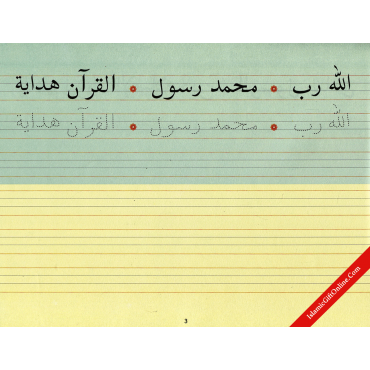 الله رب ۞ محمد رسول ۞ القرآن هداية
الله رب ۞ محمد رسول ۞ القرآن هداية
3
IslamicGiftOnline.Com